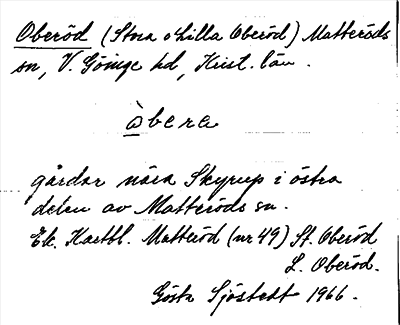 Oberöd (Stora o Lilla Oberöd) Matteröds
sn, V. Göinge hd, Krist. län.
òbera
gårdar nära Skyrup i östra
delen av Matteröds sn.
Ek. Kartbl. Matteröd (nr 49) St. Oberöd
L. Oberöd.
Gösta Sjöstedt 1966.